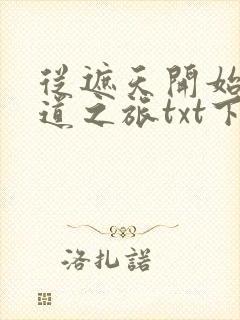 從遮天開始
道之旅txt下
洛扎諾